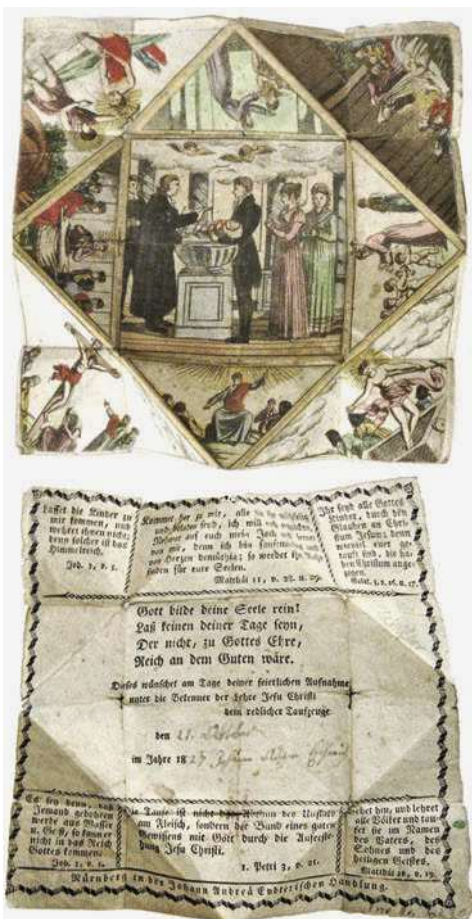 Lasset die Kinder zu
mir kommen, und
wehret ihnen nicht;
denn solcher ist das
Himmelreich.
Kommet her zu mir, alle die ihr mühselig
und beladen seyd, ich will euch erquicken.
Nehmet auf euch mein Joch und lernet
von mir, denn ich bin sanftmüthig und
von Herzen demüthig; so werdet ihr Ruhe
finden für eure Seelen.
Matthäi 11, v. 28. u. 29.
Ihr seyd alle Gottes
Kinder, durch den
Glauben an Chri-
stum Jesum; denn
wieviel euer ge-
tauft sind, die ha-
ben Christum ange-
zogen.
Galat. 3, v. 26. u. 27.
Gott bilde deine Seele rein!
Laß keinen deiner Tage seyn,
Der nicht, zu Gottes Ehre,
Reich an dem Guten wäre.
Dieses wünschet am Tage deiner feierlichen Aufnahme
unter die Bekenner der Lehre Jesu Christi
dein redlicher Taufzeuge
den 21.
im Jahre 18
Es sey denn, daß
Jemand gebohren
werde aus Wasser
u. Geist, so kommt er
nicht in das Reich
Gottes
Die Taufe ist nicht das Abthun des Unflats
am Fleisch, sondern der Bund eines guten
Gewissens mit Gott durch die Auferste-
hung Jesu Christi.
1. Petri 3, v. 21.
Gehet hin, und lehret
alle Völker und tau-
fet sie im Namen
des Vaters, des
Sohnes und des
heiligen Geistes.
Matthäi 28, v. 19.
Nürnberg in der Johann Andreä Endterischen Handlung.